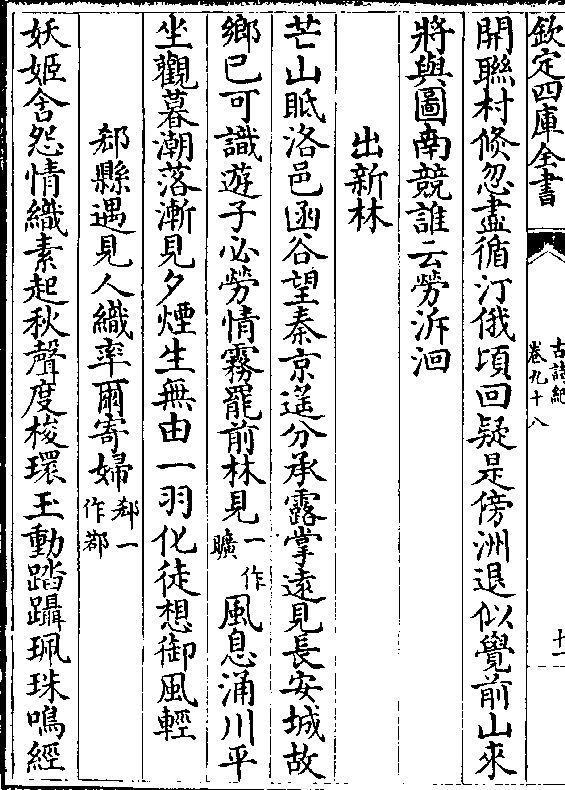 欽定四庫全書
古詩紀
卷九十八
十一
開聯村倐忽盡循汀俄頃回疑是傍洲退似覺前山來
將與圖南競誰云勞泝洄
出新林
芒山眡洛邑函谷望秦京遥分承露掌遠見長安城故
鄉已可識遊子必勞情霧罷前林見一作曠風息涌川平
坐觀暮潮落漸見夕煙生無由一羽化徒想御風輕
郄縣遇見人織率爾寄婦郄一作郗
妖姬含怨情織素起秋聲度梭環玉動踏躡珮珠鳴經